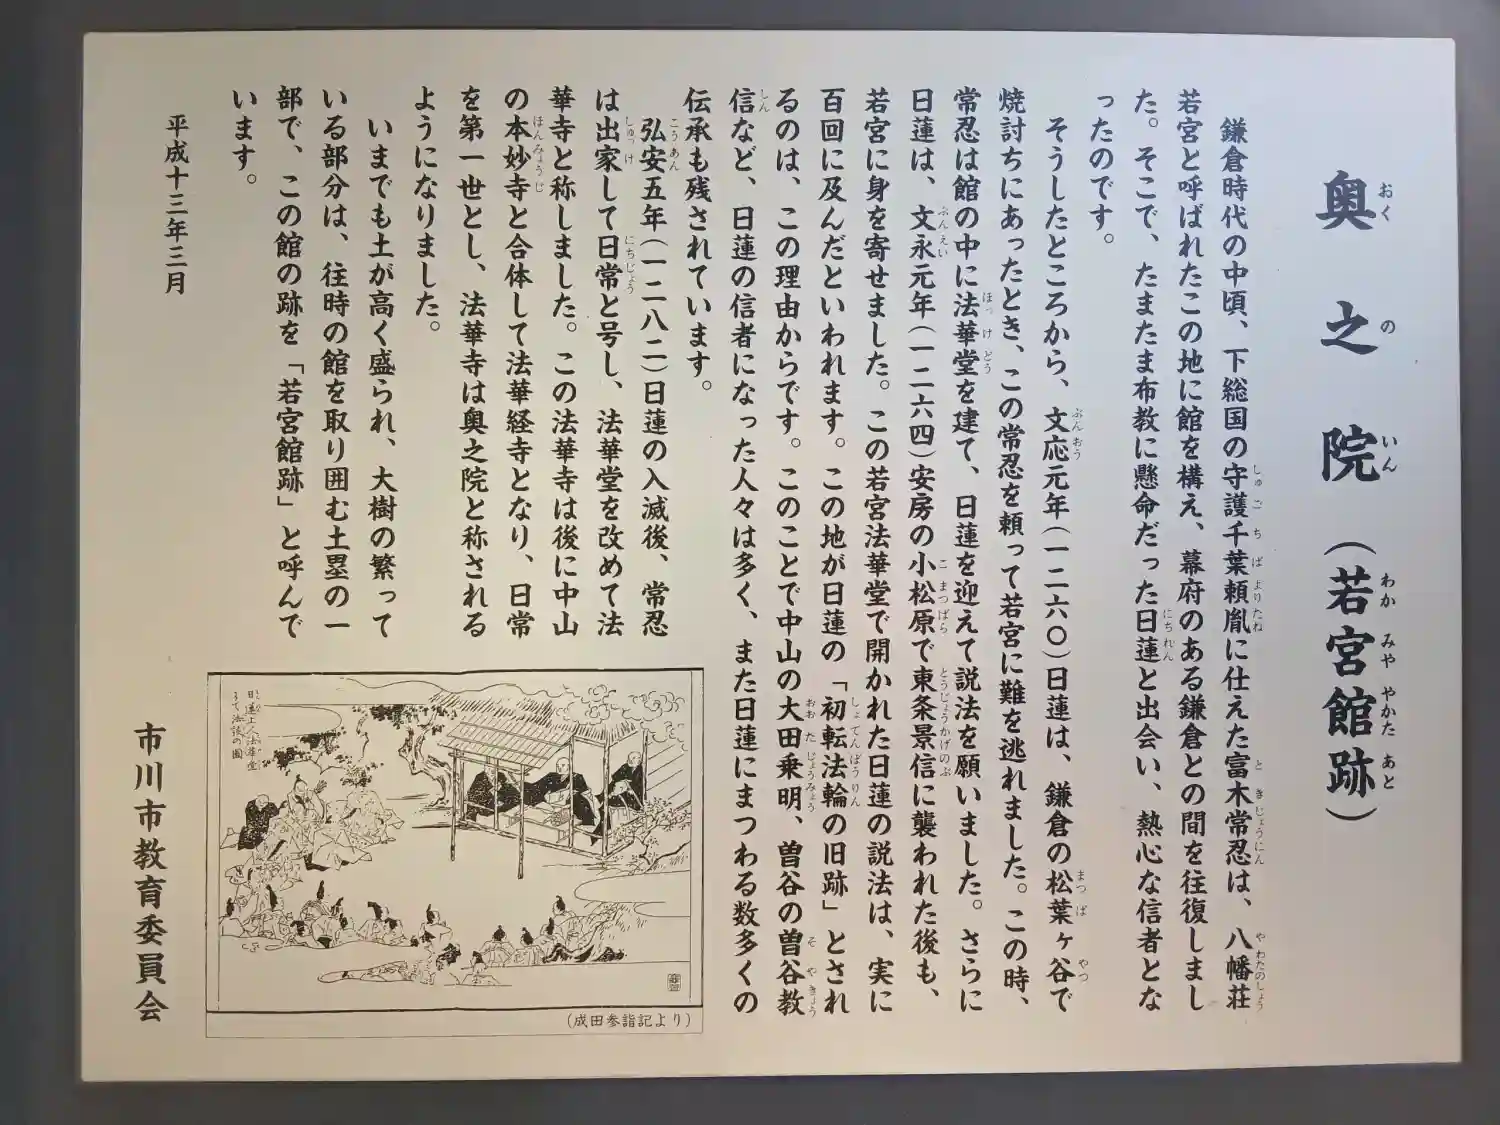 奥之院（若宮館跡）
鎌倉時代の中頃、下総国の守護千葉頼胤に仕えた富木常忍は、八幡荘
若宮と呼ばれたこの地に館を構え、幕府のある鎌倉との間を往復しまし
た。そこで、たまたま布教に懸命だった日蓮と出会い、熱心な信者とな
ったのです。
そうしたところから、文応元年（一二六〇）日蓮は、鎌倉の松葉ヶ谷で
焼討ちにあったとき、この常忍を頼って若宮に難を逃れました。この時、
常忍は館の中に法華堂を建て、日蓮を迎えて説法を願いました。さらに
日蓮は、文永元年（一二六四）安房の小松原で東条景信に襲われた後も、
若宮に身を寄せました。この若宮法華堂で開かれた日蓮の説法は、実に
百回に及んだといわれます。この地が日蓮の「初転法輪の旧跡」とされ
るのは、この理由からです。このことで中山の大田乗明、曽谷の曽谷教
信など、日蓮の信者になった人々は多く、また日蓮にまつわる数多くの
伝承も残されています。
弘安五年（一二八二）日蓮の入滅後、常忍
は出家して日常と号し、法華堂を改めて法
華寺と称しました。この法華寺は後に中山
の本妙寺と合体して法華経寺となり、日常
を第一世とし、法華寺は奥之院と称される
ようになりました。
いまでも土が高く盛られ、大樹の繁って
いる部分は、往時の館を取り囲む土塁の一
部で、この館の跡を「若宮館跡」と呼んで
います。
平成十三年三月
市川市教育委員会
日蓮上人法華堂
（成田参詣記より）